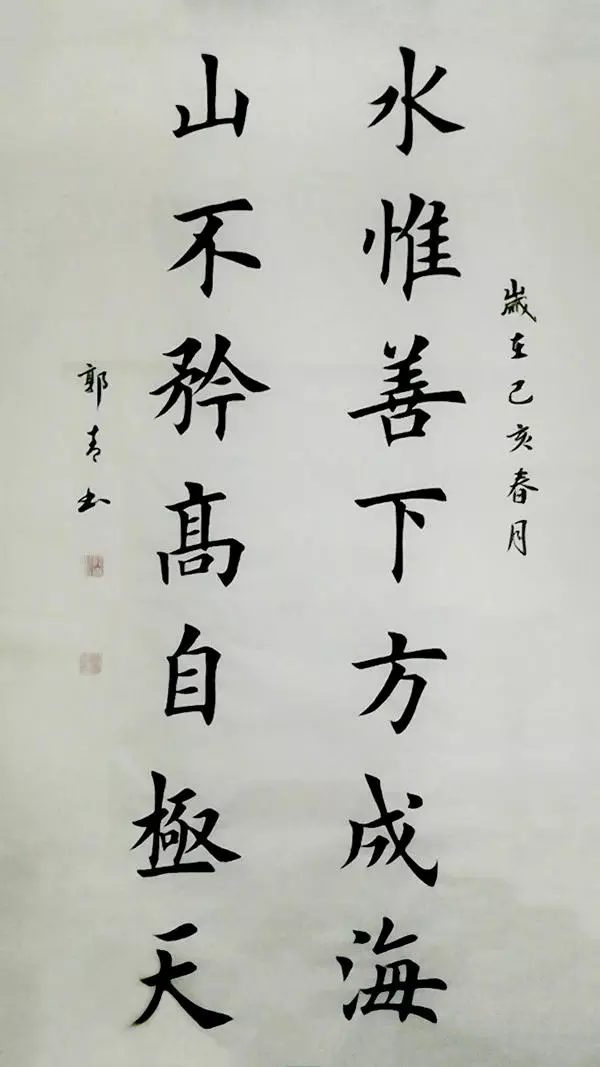 歲在己亥春月
水惟善下方成海
山不矜髙自極天
郭青书